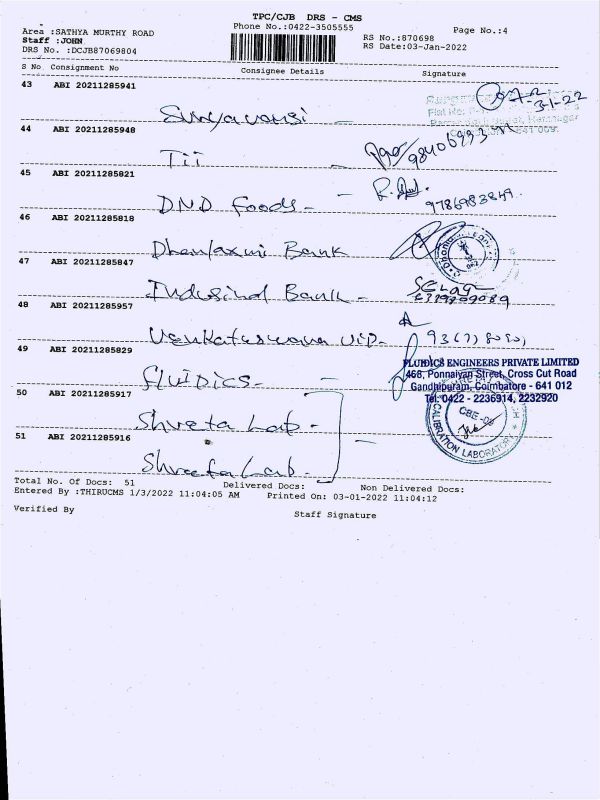 TPC/CJB DRS - CMS
Area :SATHYA MURTHY ROAD
Phone No.:0422-3505555
Page No.:4
Staff :JOHN
RS No.:870698
DRS No. :DCJB87069804
RS Date:03-Jan-2022
S No Consignment No Consignee Details Signature
43 ABI 20211285941
3-1-22
Suryavansi -
44 ABI 20211285948
641 009.
Tii -
98406993
45 ABI 20211285821
DND Foods -
9786983849
46 ABI 20211285818
Dhanlaxmi Bank
47 ABI 20211285847
Indusind Bank -
48 ABI 20211285957
Venkateswara
49 ABI 20211285829
FLUIDICS ENGINEERS PRIVATE LIMITED
Fluidics -
468, Ponnaiyan Street, Cross Cut Road
Gandhipuram, Coimbatore - 641 012
50 ABI 20211285917
Tel: 0422 - 2236914, 2232920
Shreeta Lab -
CBE-
CALIBRATION LABORATORY
51 ABI 20211285916
Shreeta Lab -
Total No. Of Docs: 51 Delivered Docs: Non Delivered Docs:
Entered By :THIRUCMS 1/3/2022 11:04:05 AM Printed On: 03-01-2022 11:04:12
Verified By
Staff Signature